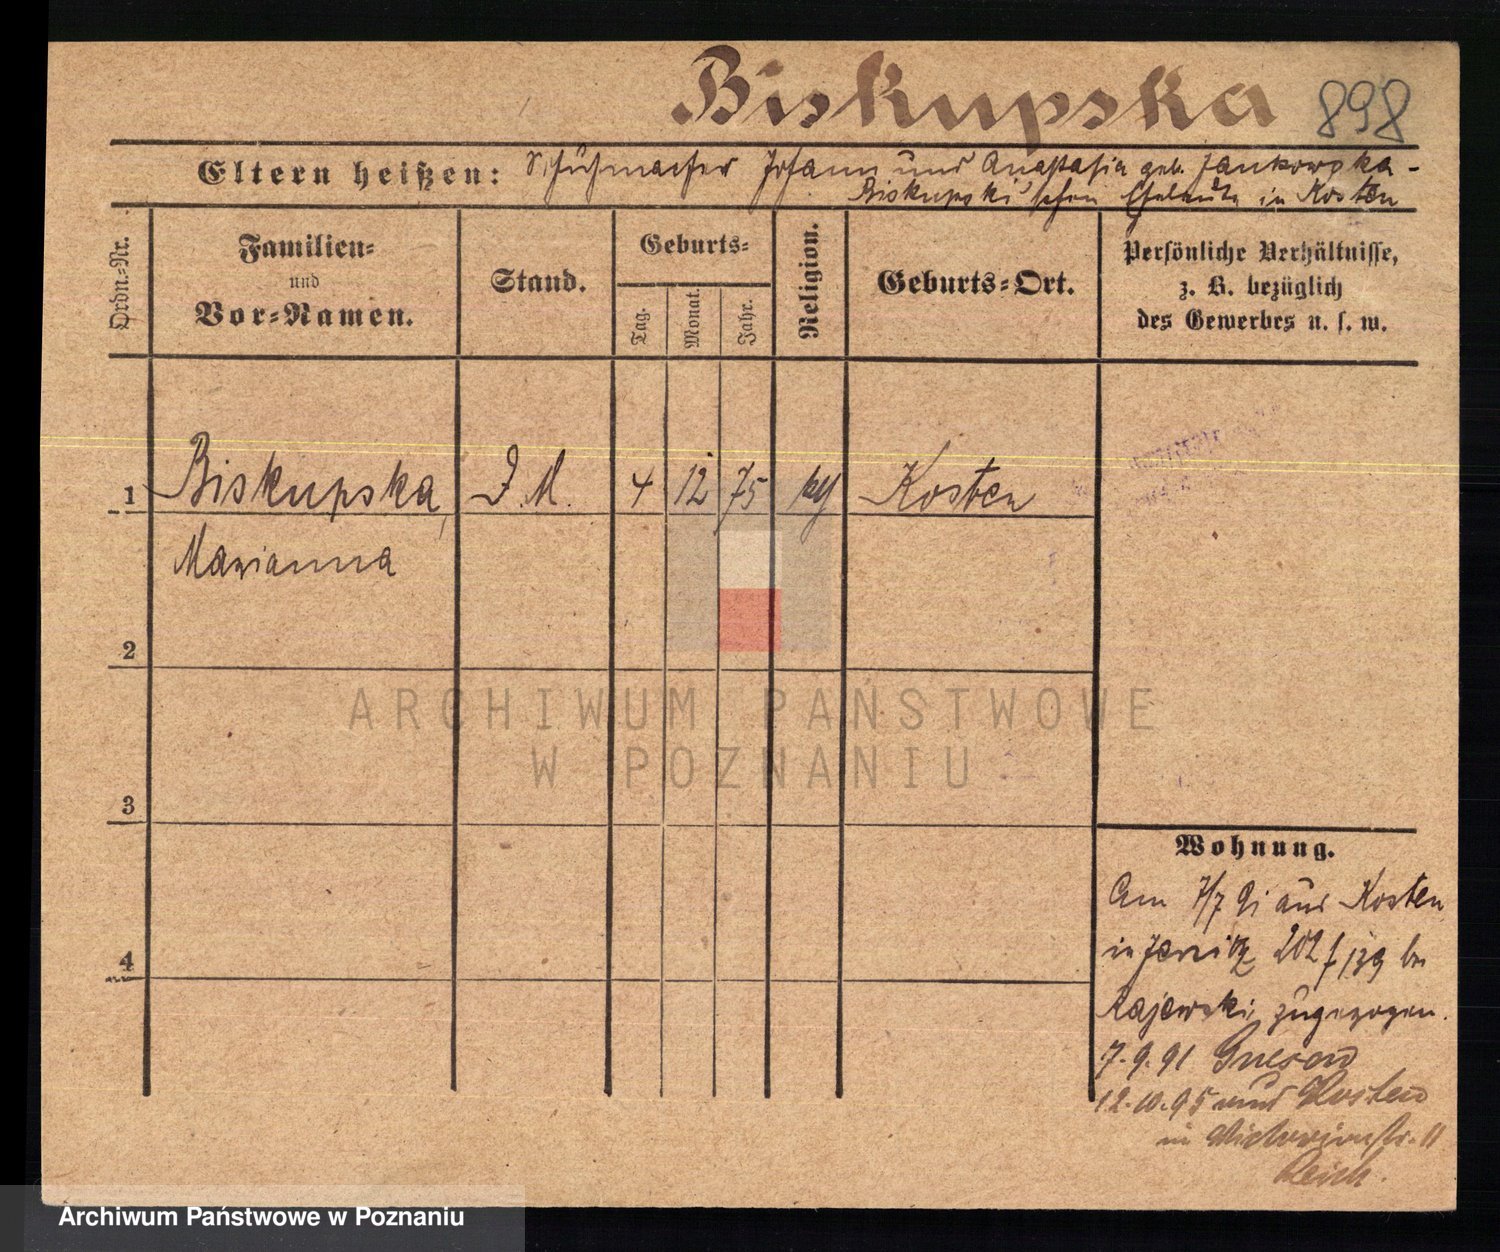 Biskupska 898
Eltern heißen: Schuhmacher Johann und Anastasia geb. Jankowska-
Biskupski'schen Eheleute in Kosten
Ordn.-Nr.
Familien-
und
Vor-Namen.
Stand.
Geburts-
Tag.
Monat.
Jahr.
Religion.
Geburts-Ort.
Persönliche Verhältnisse,
z. B. bezüglich
des Gewerbes u. s. w.
1 Biskupska, D. M. 4 12 75 Kosten
Marianna
2
3
4
ARCHIWUM PAŃSTWOWE
W POZNANIU
Wohnung.
Am 7/7 91 aus Kosten
in Jersitz 202 f 139 bei
Rajewski, zugezogen.
7.9.91 Gnesen
12.10.95 aus Kosten
in Victoriastr. 11
Reich.
Archiwum Państwowe w Poznaniu